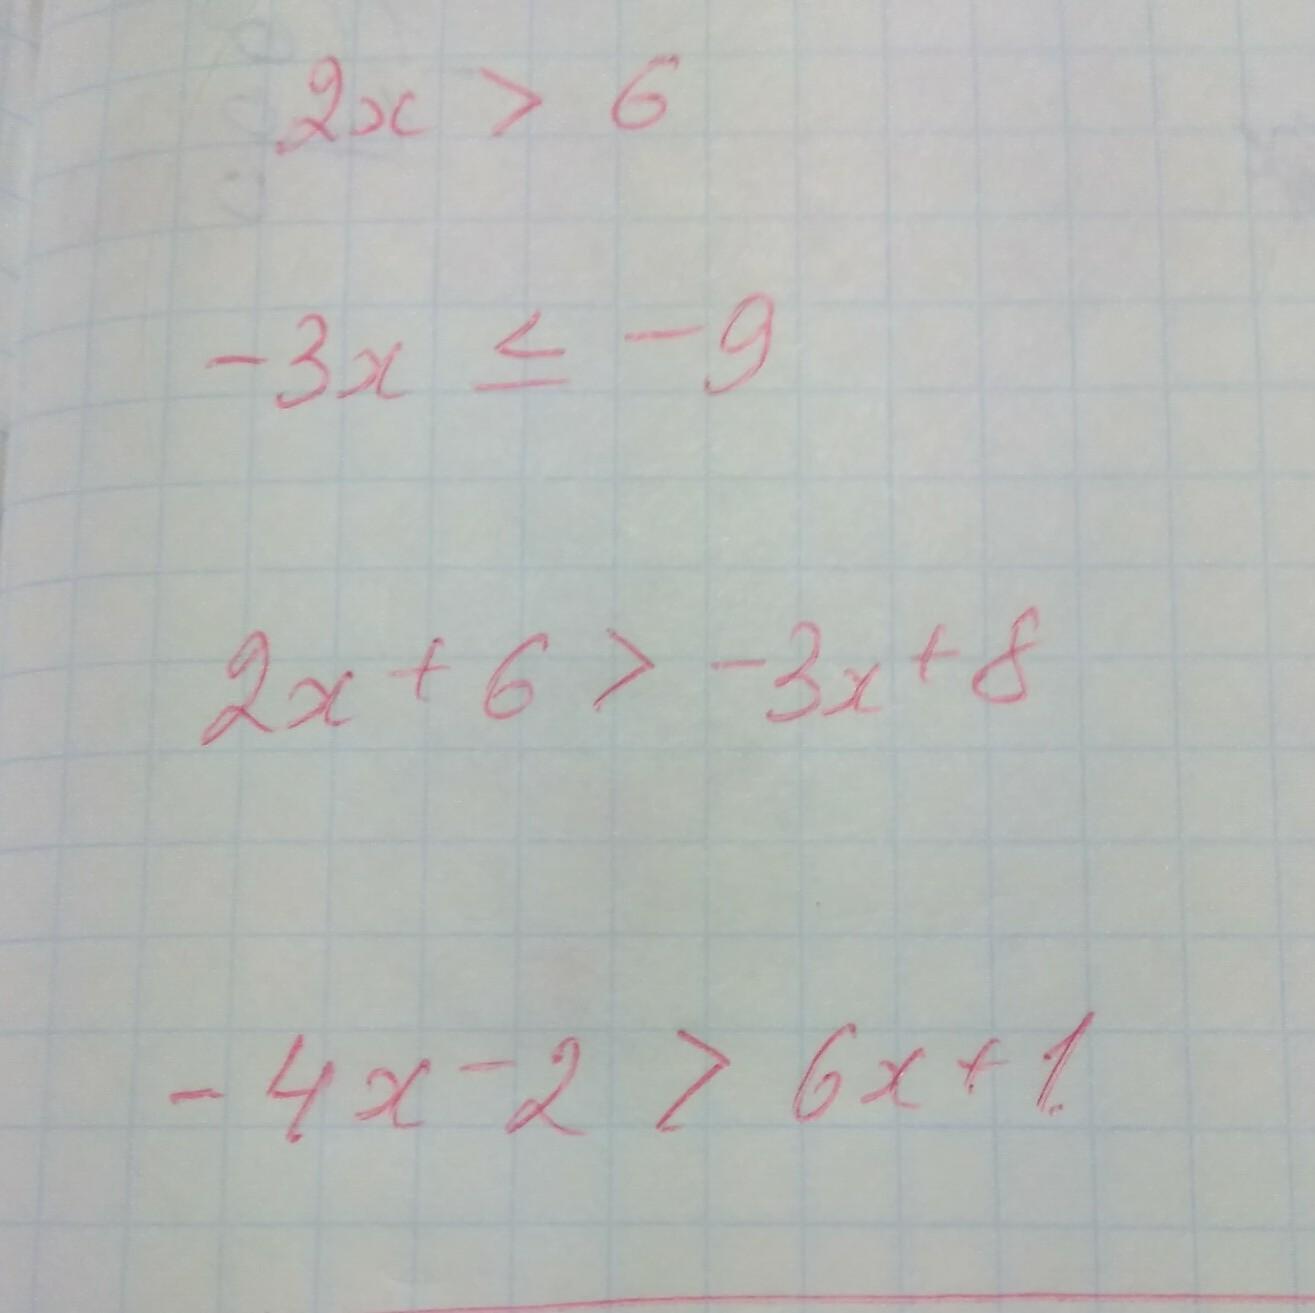 2x > 6
-3x ≤ -9
2x + 6 > -3x + 8
-4x - 2 > 6x + 1